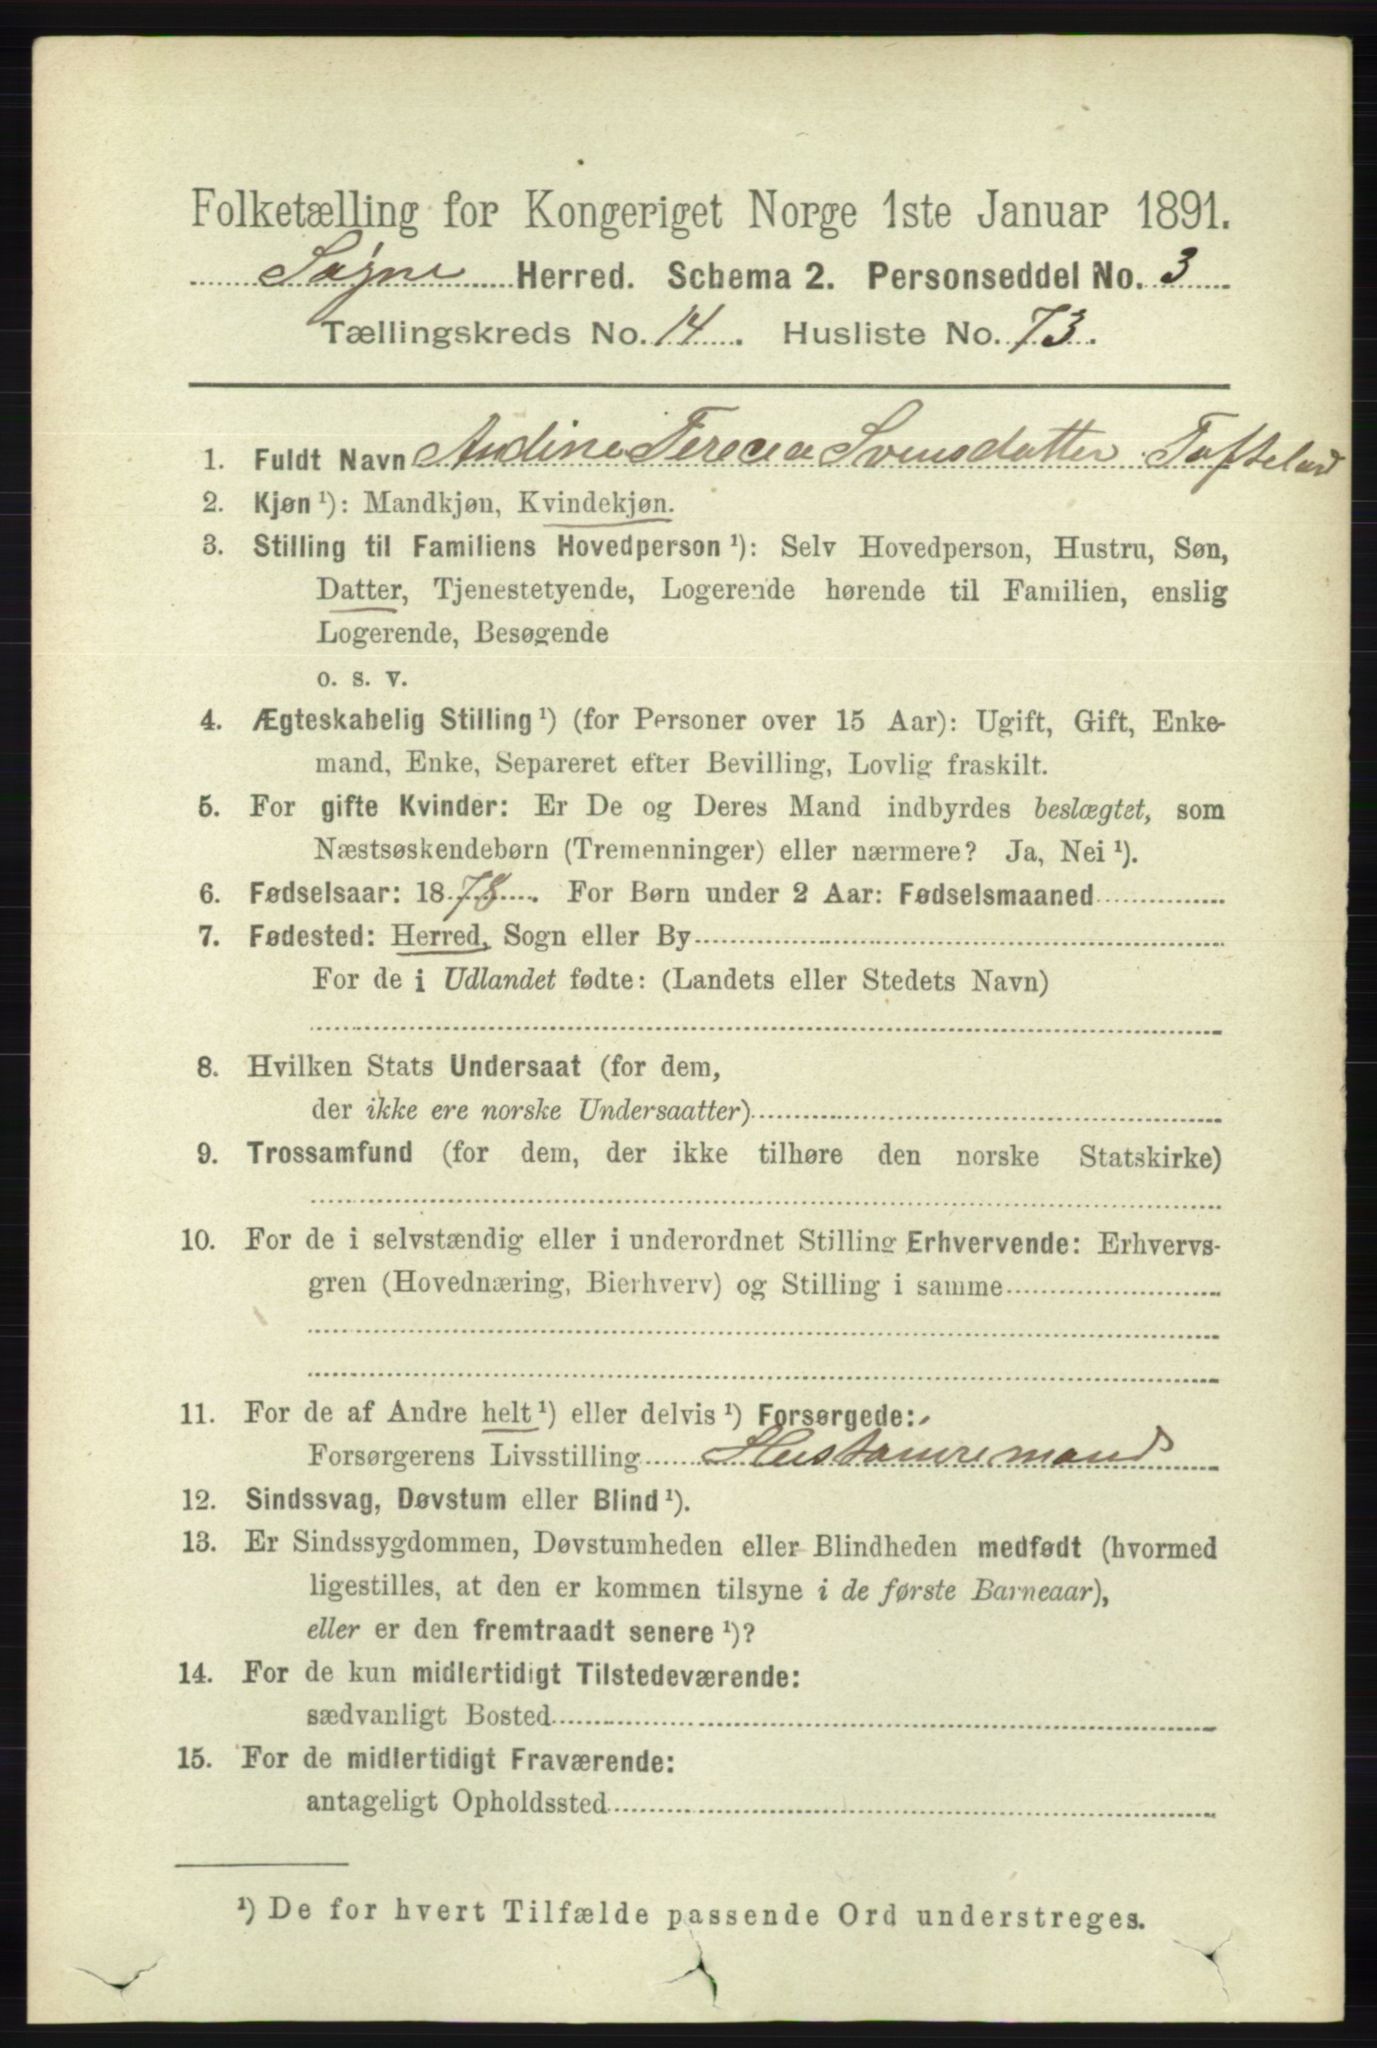 Folketælling for Kongeriget Norge 1ste Januar 1891.
Søgne Herred. Schema 2. Personseddel No. 3
Tællingskreds No. 14. Husliste No. 73.
1. Fuldt Navn Andine Terecea Svensdatter Tofteland
2. Kjøn ¹): Mandkjøn, Kvindekjøn.
3. Stilling til Familiens Hovedperson ¹): Selv Hovedperson, Hustru, Søn,
Datter, Tjenestetyende, Logerende hørende til Familien, enslig
Logerende, Besøgende
o. s. v.
4. Ægteskabelig Stilling ¹) (for Personer over 15 Aar): Ugift, Gift, Enke-
mand, Enke, Separeret efter Bevilling, Lovlig fraskilt.
5. For gifte Kvinder: Er De og Deres Mand indbyrdes beslægtet, som
Næstsøskendebørn (Tremenninger) eller nærmere? Ja, Nei ¹).
6. Fødselsaar: 1878. For Børn under 2 Aar: Fødselsmaaned
7. Fødested: Herred, Sogn eller By
For de i Udlandet fødte: (Landets eller Stedets Navn)
8. Hvilken Stats Undersaat (for dem,
der ikke ere norske Undersaatter)
9. Trossamfund (for dem, der ikke tilhøre den norske Statskirke)
10. For de i selvstændig eller i underordnet Stilling Erhvervende: Erhvervs-
gren (Hovednæring, Bierhverv) og Stilling i samme
11. For de af Andre helt ¹) eller delvis ¹) Forsørgede:
Forsørgerens Livsstilling Hustømremand
12. Sindssvag, Døvstum eller Blind ¹).
13. Er Sindssygdommen, Døvstumheden eller Blindheden medfødt (hvormed
ligestilles, at den er kommen tilsyne i de første Barneaar),
eller er den fremtraadt senere ¹)?
14. For de kun midlertidigt Tilstedeværende:
sædvanligt Bosted
15. For de midlertidigt Fraværende:
antageligt Opholdssted
¹) De for hvert Tilfælde passende Ord understreges.